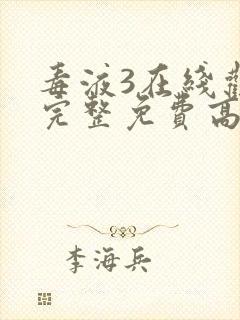 毒液3在线
完整免費高
李海兵